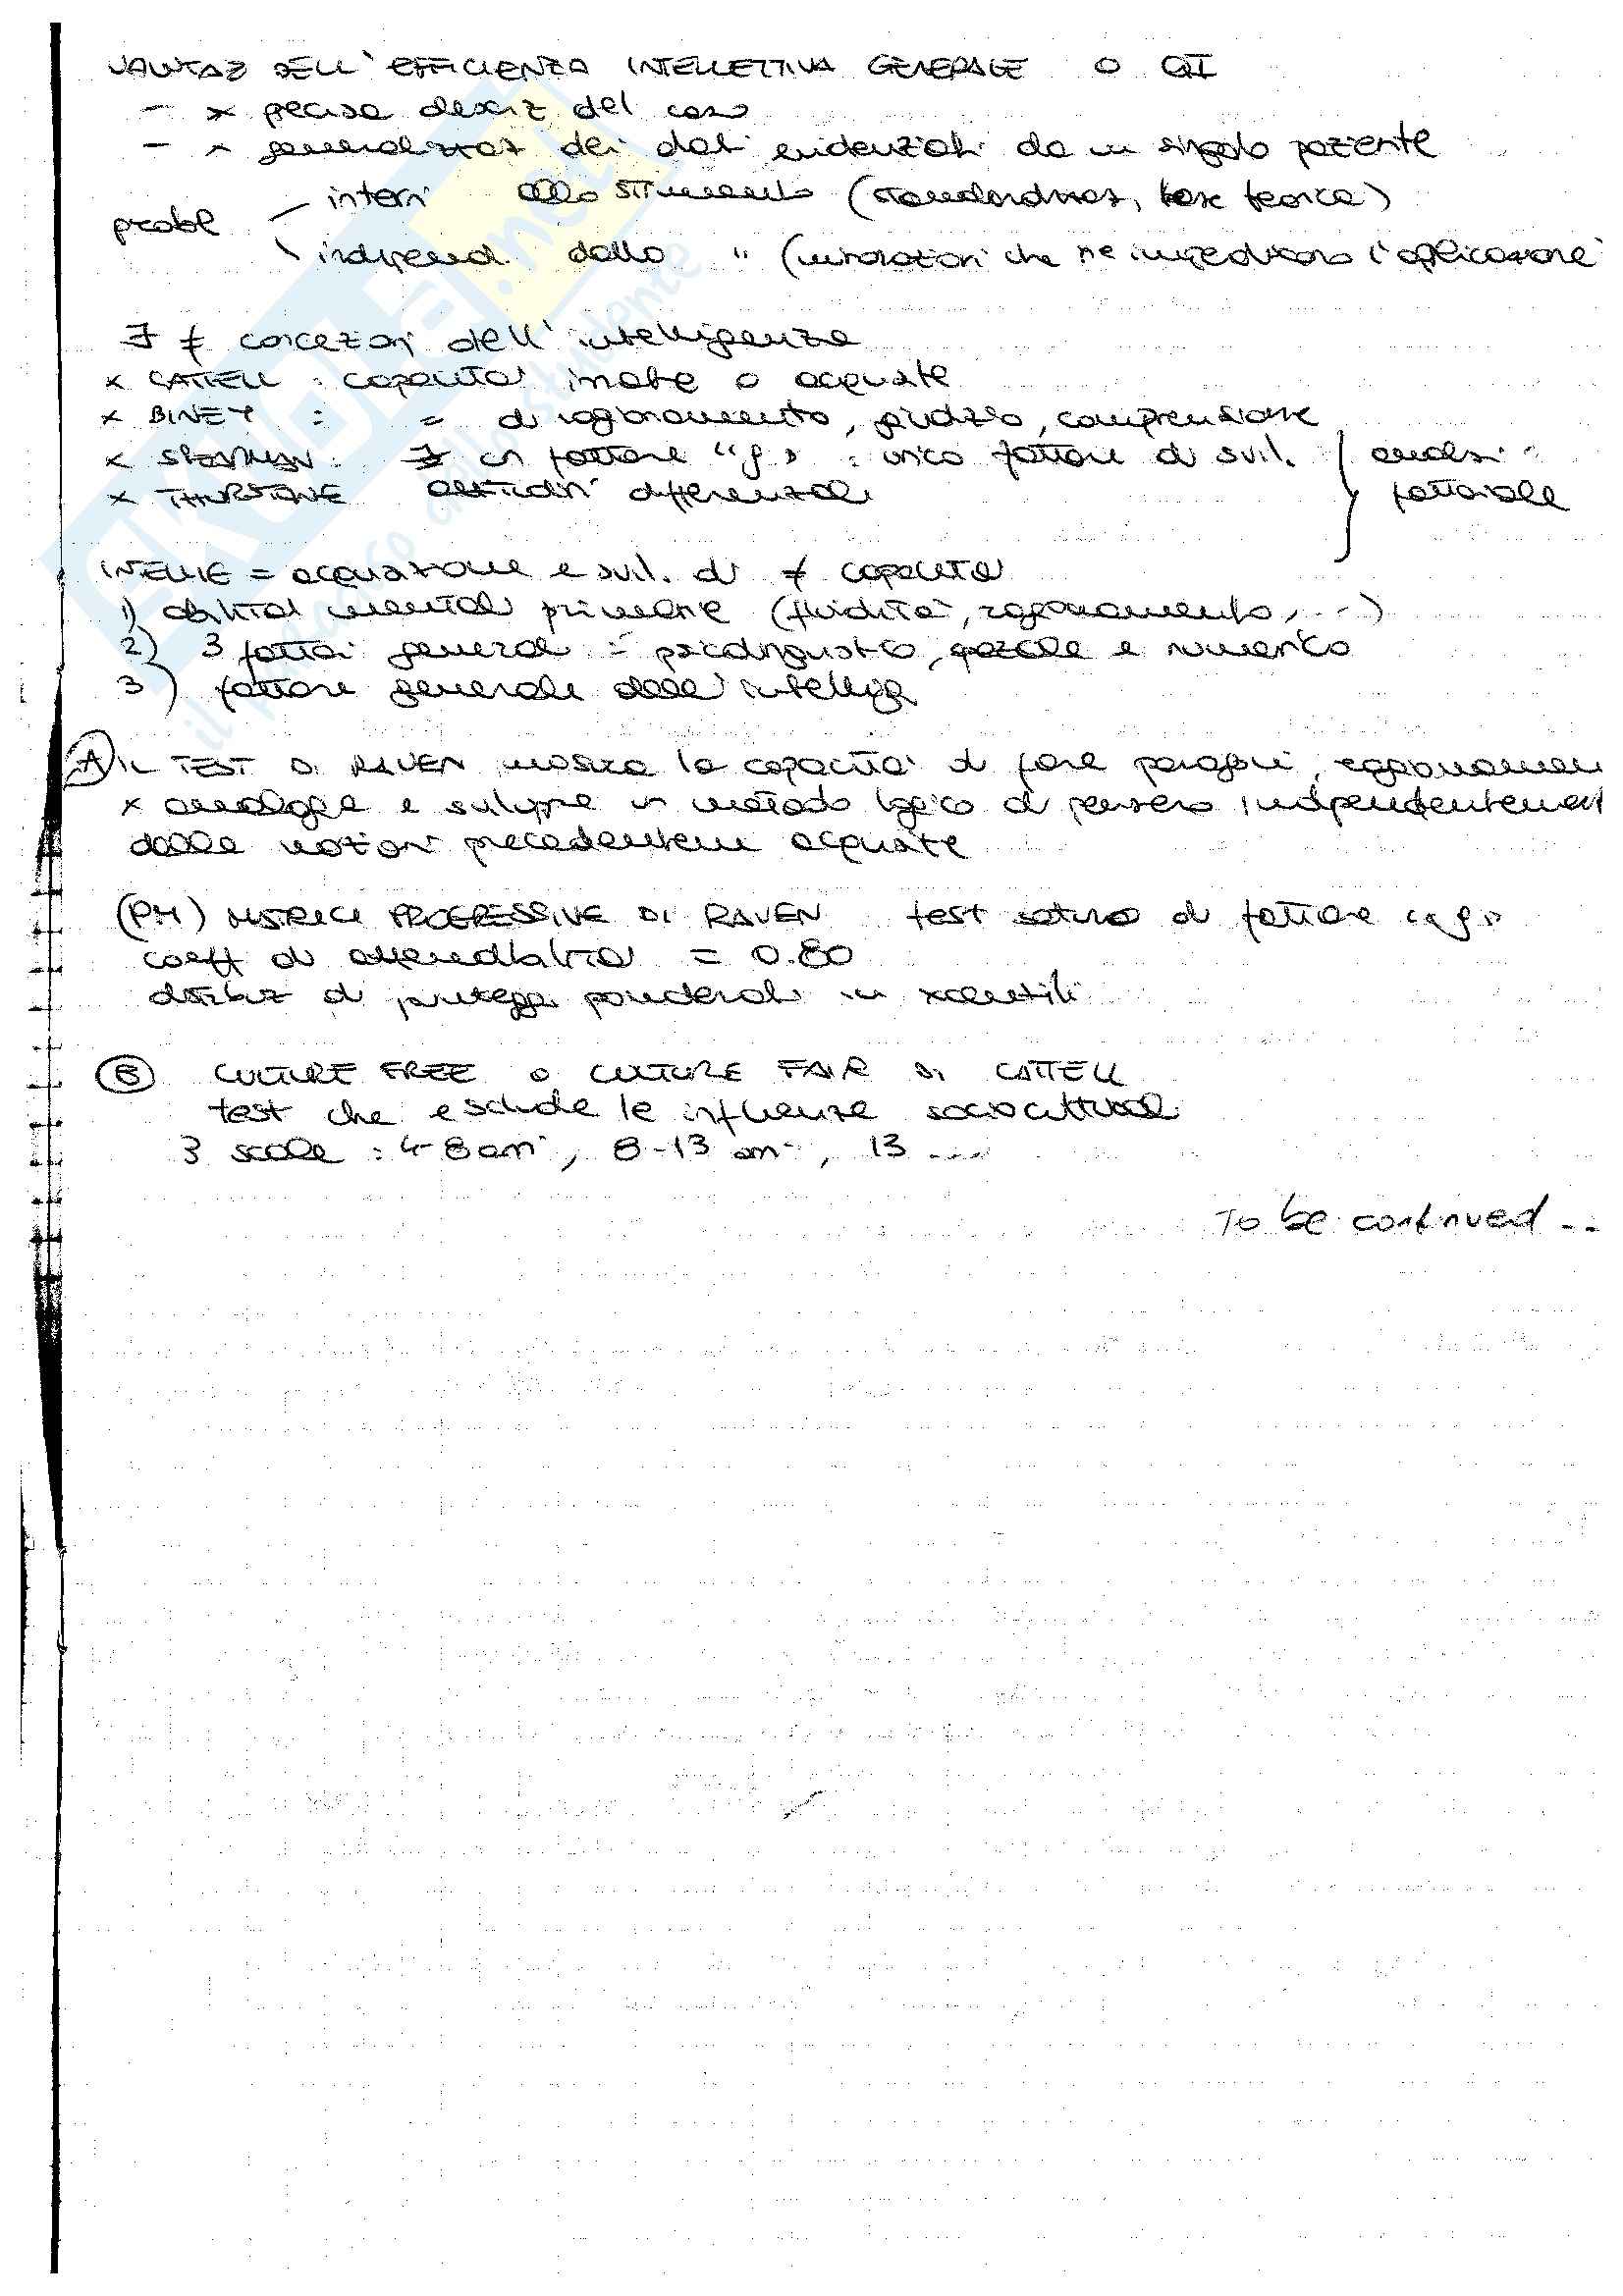 VALUTAZ DELL'EFFICIENZA INTELLETTIVA GENERALE O QI
- x precisa descriz del caso
- x generalizzaz dei dati evidenziati da un singolo paziente
probl interni allo strumento (standardizzaz, base teorica)
independ. dallo " (che ne impediscono l'applicazione
∃ ≠ concezioni dell'intelligenza
x CATTELL : capacità innate o acquisite
x BINET : = di ragionamento, giudizio, comprensione
x SPEARMAN : ∃ un fattore "g" : unico fattore di svil. analisi
x THURSTONE attitudini differenziali fattoriale
INTELLIG = acquisizione e svil. di ≠ capacità
1) abilità mentali primarie (fluidità, ragionamento, ...)
2) 3 fattori generali = psicolinguistico, spaziale e numerico
3) fattore generale dell'intellig.
A IL TEST DI RAVEN misura la capacità di fare paragoni, ragionamen
x analogia e sviluppare un metodo logico di pensiero independentement
dalle nozioni precedentem acquisite
(PM) MATRICI PROGRESSIVE DI RAVEN test saturo di fattore "g"
coeff di attendibilità = 0.80
distribuz di punteggi ponderali in xcentili
B CULTURE FREE o CULTURE FAIR DI CATTELL
test che esclude le influenze socioculturali
3 scale : 4-8 anni, 8-13 anni, 13 ....
To be continued ..